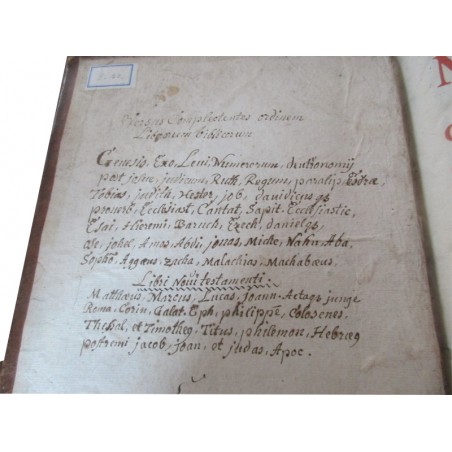 Versus Complectentes ordinem
Librorum biblicorum
Genesis. Exo. Levi. Numerorum, deutronomij
post, josue, judicum, Ruth, Regum, paralip, Esdræ
Tobias, judith, Hester, job, davidicus qs
proverb, Ecclesiast, Cantat, Sapit-Ecclesiastic,
Esai, Hieremi, Baruch, Ezech, danielqs
ose, johel, Amos, Abdi, jonas, Miche, Nahu, Aba,
Sopho, Aggæus, zacha, Malachias, Machabæus.
Libri Novi testamenti
Matthæus, Marcus, Lucas, Joann-Actaqs junge
Roma, Corin, Galat, Eph, philippe, Colosenes,
Thessal, et Timotheq, Titus, philemon, Hebræq
postremi jacob, joan, et judas, Apoc.
N